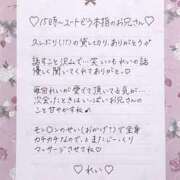 ♡15時〜コートどう本指のお兄さん♡
久しぶり(!?)の 貸し切り、ありがとう♪
話すこと沢山で…笑 いつもれいの話
優しく聞いてくれてありがとう
毎回れいが愛でて頂いてる気が…
次会ったときはいっぱいお兄さんの
こと甘やかすね♡
モン○ンのせい(おかげ?)で全身
カチカチなので(笑)、またじっくり
マッサージさせてね♡
♡れい♡